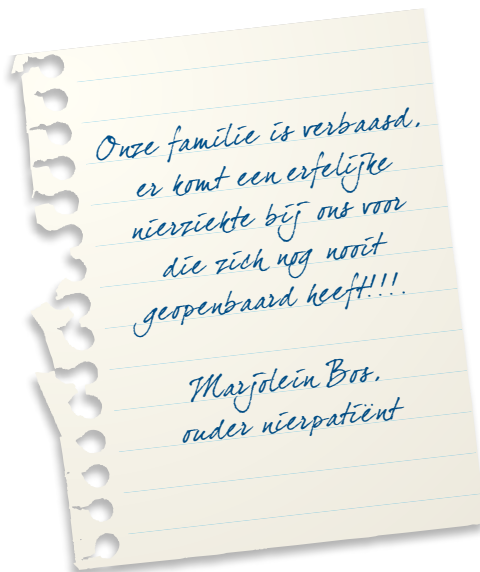 Onze familie is verbaasd,
er komt een erfelijke
nierziekte bij ons voor
die zich nog nooit
geopenbaard heeft!!!.
Marjolein Bos,
ouder nierpatiënt